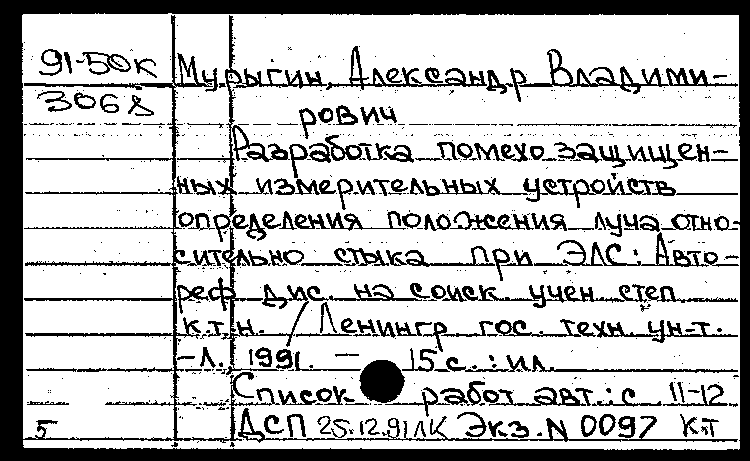 91-50к Мурыгин, Александр Владими-
3068 рович
Разработка помехозащищен-
ных измерительных устройств
определения положения луча отно-
сительно стыка при ЭЛС: Авто-
реф. дис. на соиск. учен. степ.
к.т.н. / Ленингр. гос. техн. ун-т.
-Л., 1991. — 15 с. : ил.
Список работ авт.: с 11-12
5 ДСП 25.12.91 ЛК Экз. N 0097 кт